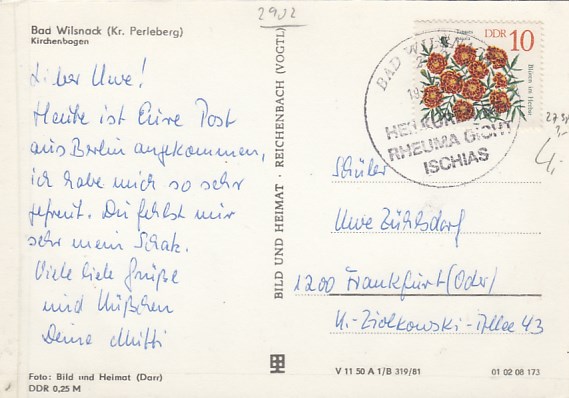 2902
Bad Wilsnack (Kr. Perleberg)
Kirchenbogen
Lieber Uwe!
Heute ist Eure Post
aus Berlin angekommen,
ich habe mich so sehr
gefreut. Du fehlst mir
sehr mein Schatz.
Viele liebe Grüße
und Küßchen
Deine Mutti
Foto: Bild und Heimat (Darr)
DDR 0,25 M
BILD UND HEIMAT · REICHENBACH (VOGTL)
DDR 10
Tagetes
Blüten im Herbst
BAD WILSNACK
RHEUMA GICHT
ISCHIAS
Schüler
Uwe Zühlsdorf
1200 Frankfurt (Oder)
K.-Ziolkowski-Allee 43
V 11 50 A 1/B 319/81
01 02 08 173